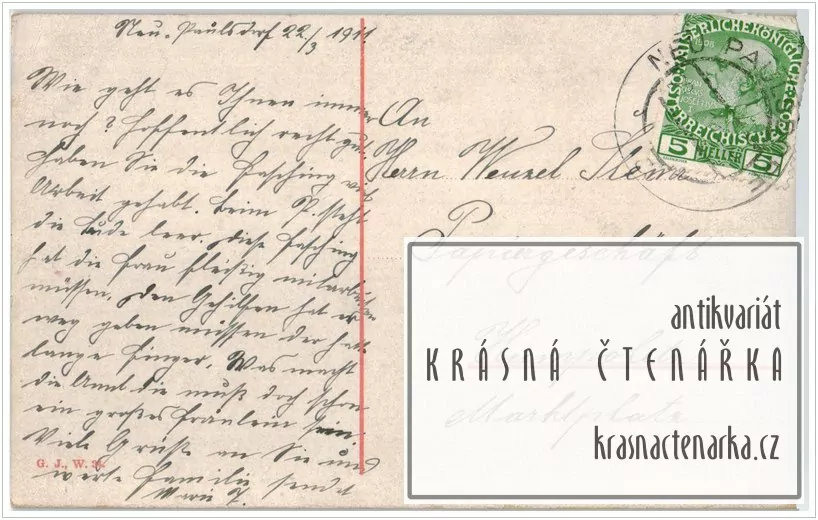 Neu. Paulsdorf 22/3 1911.
Wie geht es Ihnen immer
noch? Hoffentlich recht gut.
haben Sie die Fasching viel
Arbeit gehabt. beim P. steht
die Bude leer. diese Fasching
hat die Frau fleißig mitarbeiten
müssen. Den Gehilfen hat er
weg geben müssen der hatte
lange Finger. Was macht
die Annl die muß doch schon
ein großes Fräulein sein.
Viele Grüße an Sie und
werte Familie sendet
Marie T.
G. J., W.
An
Herrn Wenzel
Papiergeschäft
Marktplatz
KAISERLICHE KÖNIGLICHE
ÖSTERREICHISCHE
5 HELLER 5
NEU PAULS
antikvariát
KRÁSNÁ ČTENÁŘKA
krasnactenarka.cz